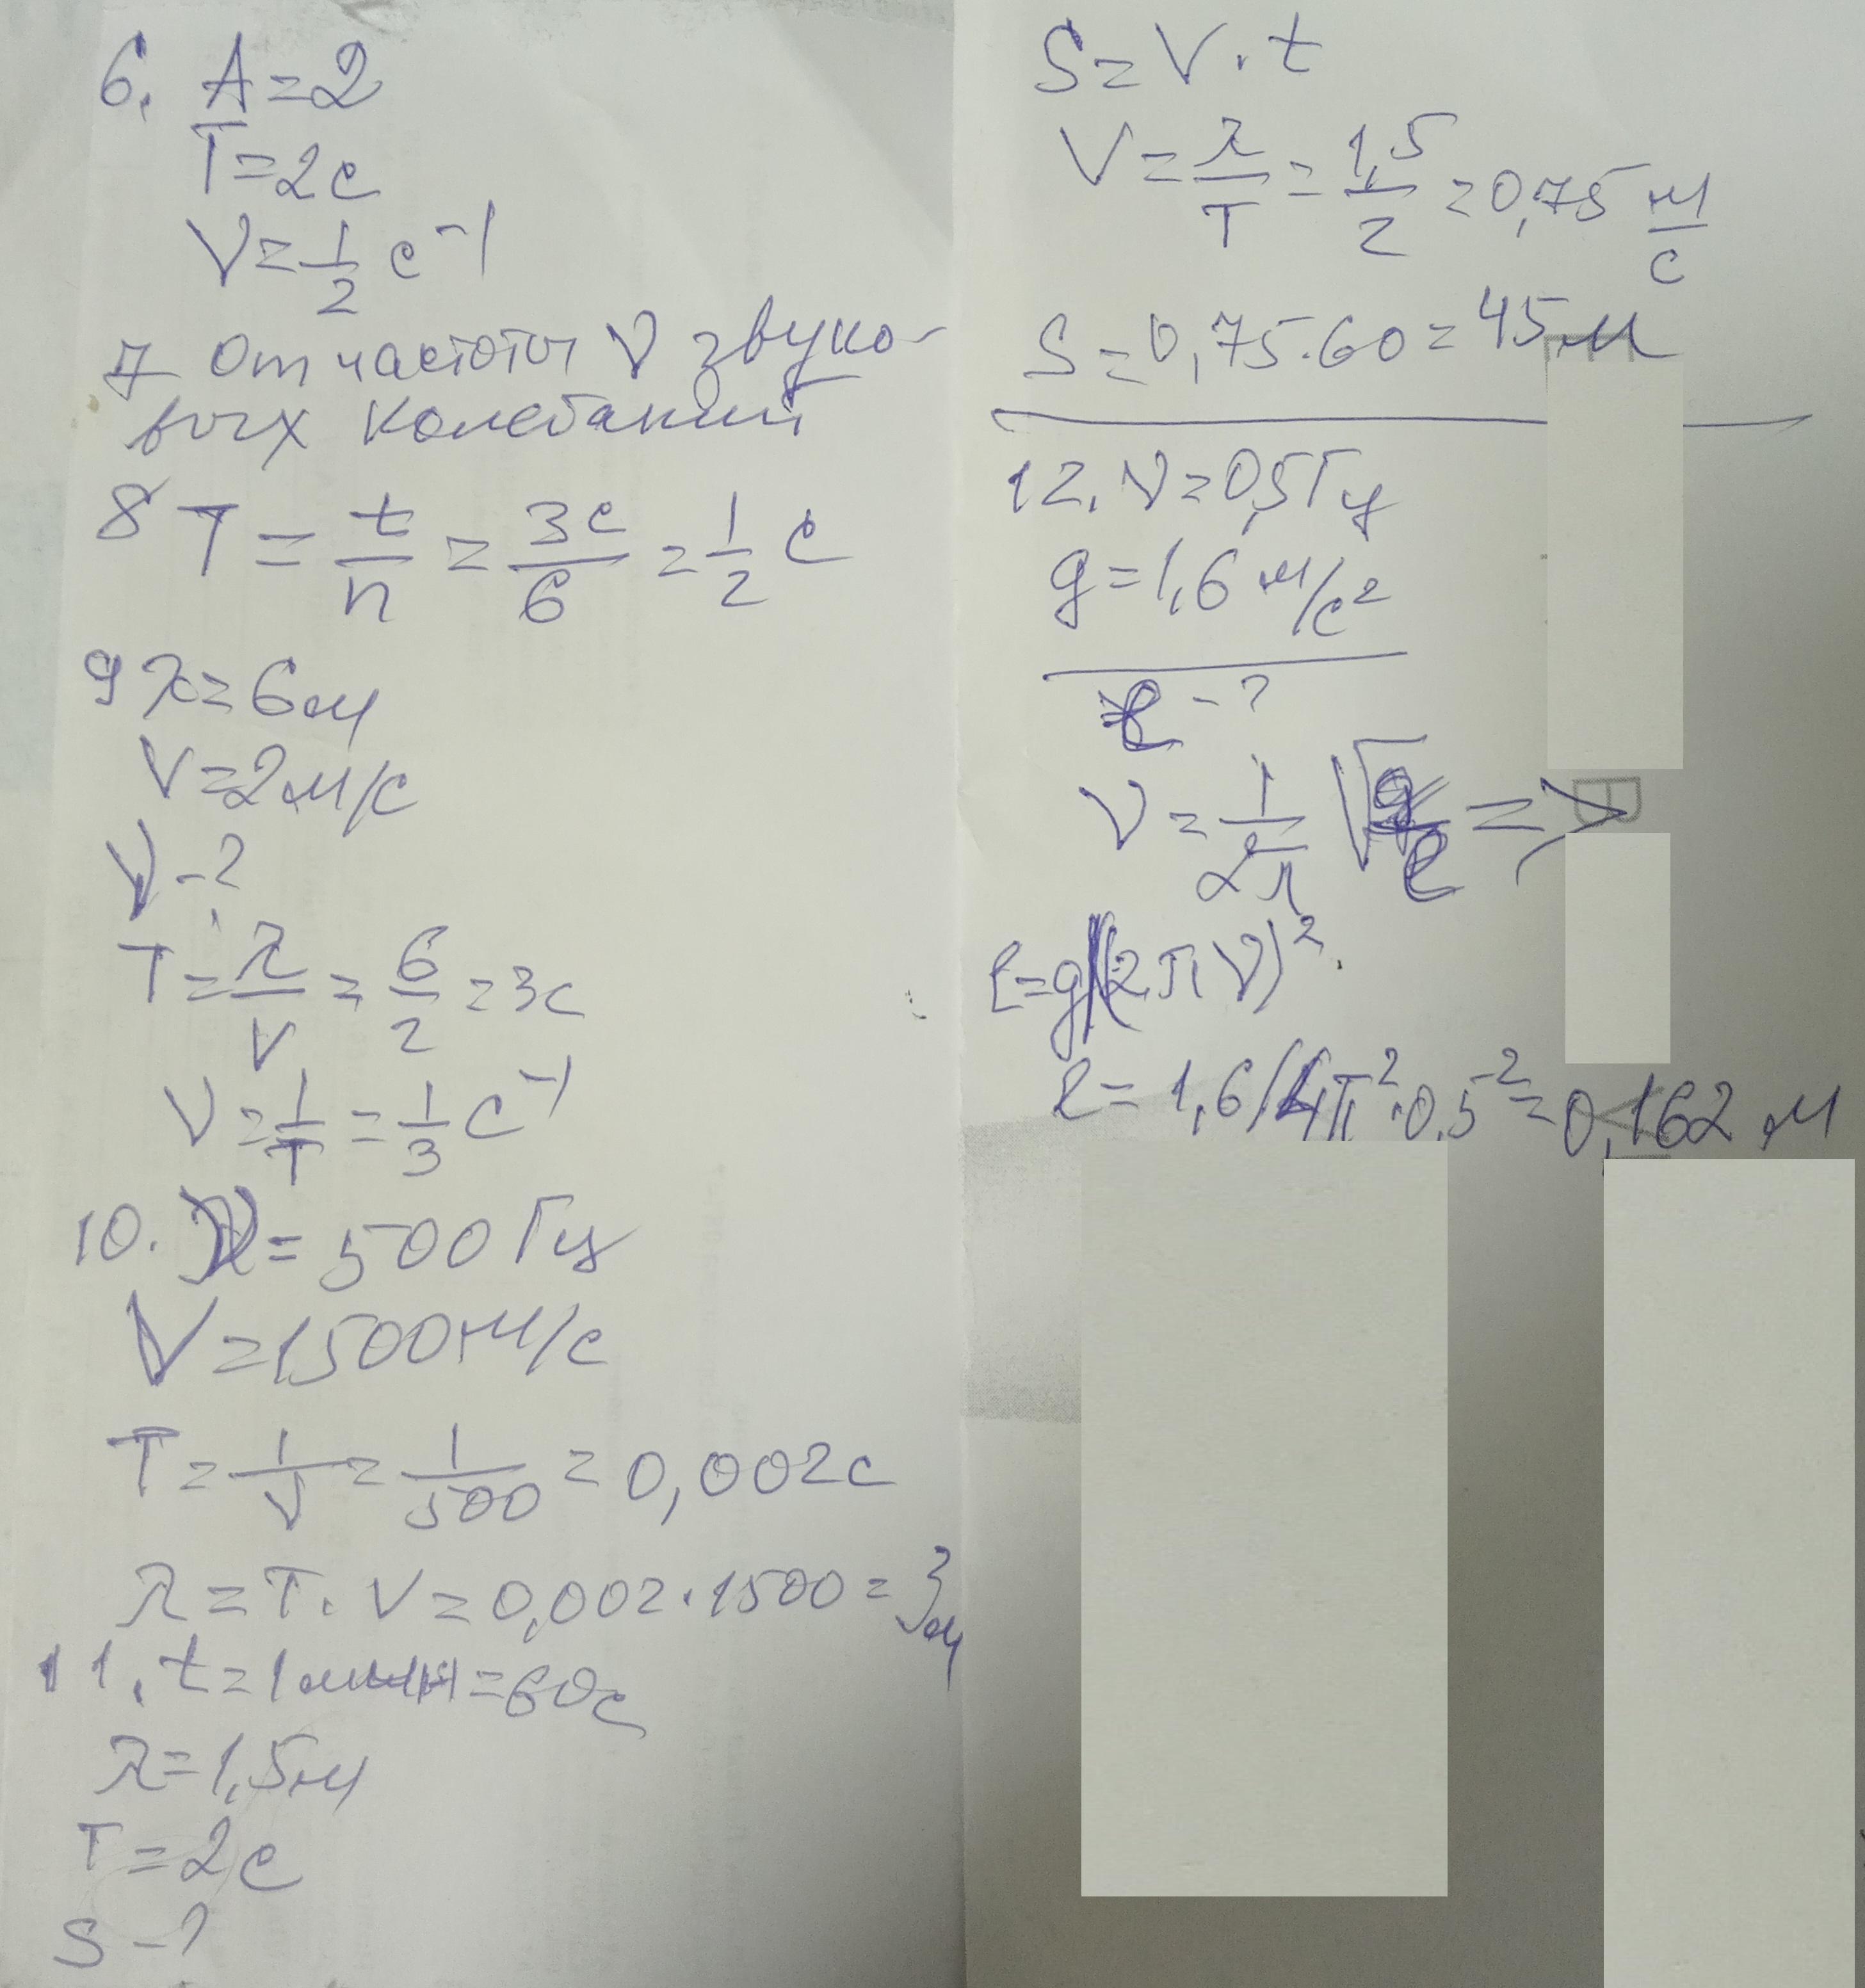 6. A=2
T=2с
ν=1/2 с⁻¹
7 От частоты ν звуко-
вых колебаний
8 T = t/n = 3с/6 = 1/2 с
9 λ=6м
V=2м/с
ν-?
T=λ/V=6/2=3с
ν=1/T=1/3 с⁻¹
10. ν=500Гц
V=1500м/с
T=1/ν=1/500=0,002с
λ=T·V=0,002·1500=3м
11. t=1мин=60с
λ=1,5м
T=2с
S-?
S=V·t
V=λ/T=1,5/2=0,75 м/с
S=0,75·60=45м
12. ν=0,5Гц
g=1,6 м/с²
ℓ-?
ν=1/2π √g/ℓ =>
ℓ=g/(2πν)².
ℓ=1,6/4π²·0,5⁻²=0,162 м